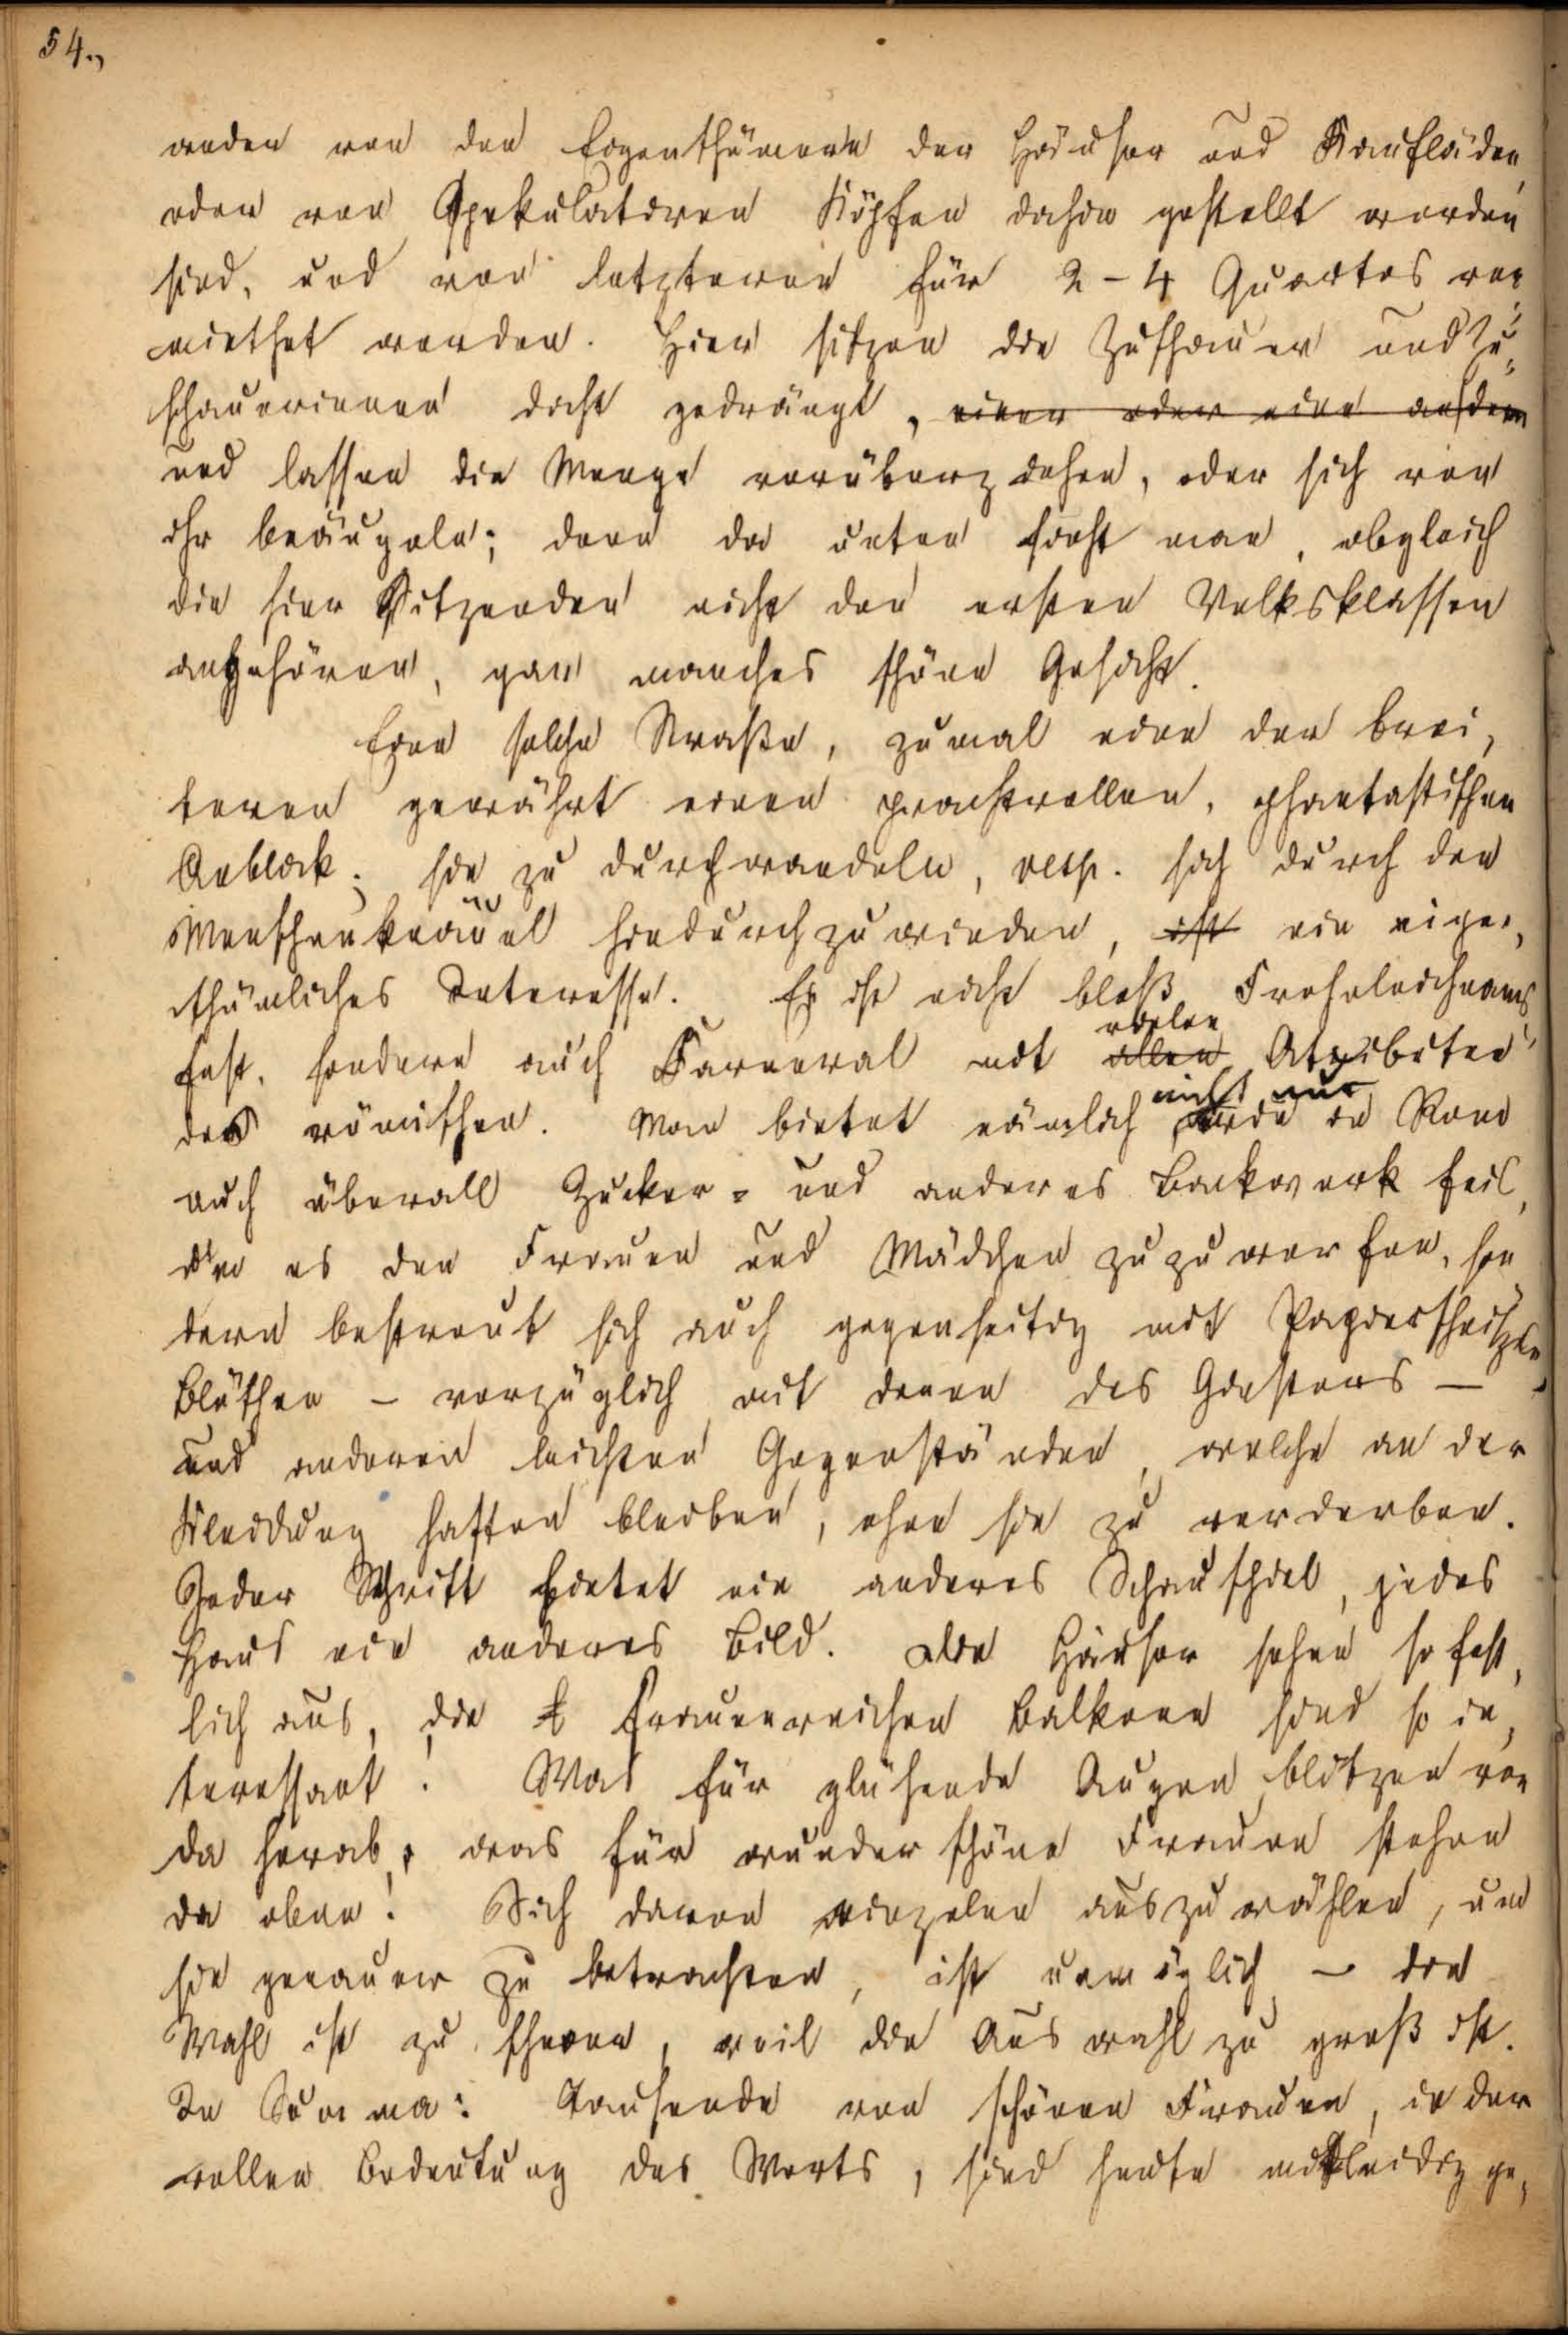 54.,
enden von den Eigenthümern der Häuser und Kaufläden
oder von spekulativen Köpfen dahin gestellt worden
sind, und von letzteren für 2-4 Quartos ver
miethet werden. Hier sitzen die Zuschauer und Zu„
schauerinnen dicht gedrängt, einer oder eine anderen
und lassen die Menge vorüberziehen, oder sich von
ihr beäugeln; denn da unten sieht man, obgleich
die hier Sitzenden nicht den ersten Volksklassen
angehören, gar manches schöne Gesicht.
Eine solche Straße, zumal eine der brei„
teren gewährt einen prachtvollen, phantastischen
Anblick; sie zu durchwandeln, resp. sich durch den
Menschenknäuel hindurchzuwinden, ist ein eigen„
thümliches Interesse. Es ist nicht bloß Frohnleichnams
fest, sondern auch Karneval mit allen vielen Attributen
des römischen. Man bietet nämlich nicht nur wie in Rom
auch überall Zucker- und anderes Backwerk feil,
um es den Frauen und Mädchen zuzuwerfen, son
dern bestreut sich auch gegenseitig mit Papierschnitzeln,
Blüthen – vorzüglich mit denen des Ginsters –
und anderen leichten Gegenständen, welche an der
Kleidung haften bleiben, ohne sie zu verderben.
Jeder Schritt bietet ein anderes Schauspiel, jedes
Haus ein anderes Bild. Die Häuser sehen so fest„
lich aus, die frauenreichen Balkone sind so in„
teressant! Was für glühende Augen blitzen von
da herab, was für wunderschöne Frauen stehen
da oben! Sich davon einzelne auszuwählen, um
sie genauer zu betrachten, ist unmöglich – die
Wahl ist zu schwer, weil die Auswahl zu groß ist.
In Summa: Tausende von schönen Frauen, in der
vollen Bedeutung des Worts, sind heute mitleidig ge„